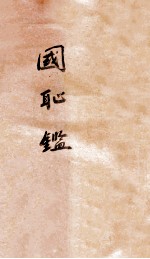 國恥鑑